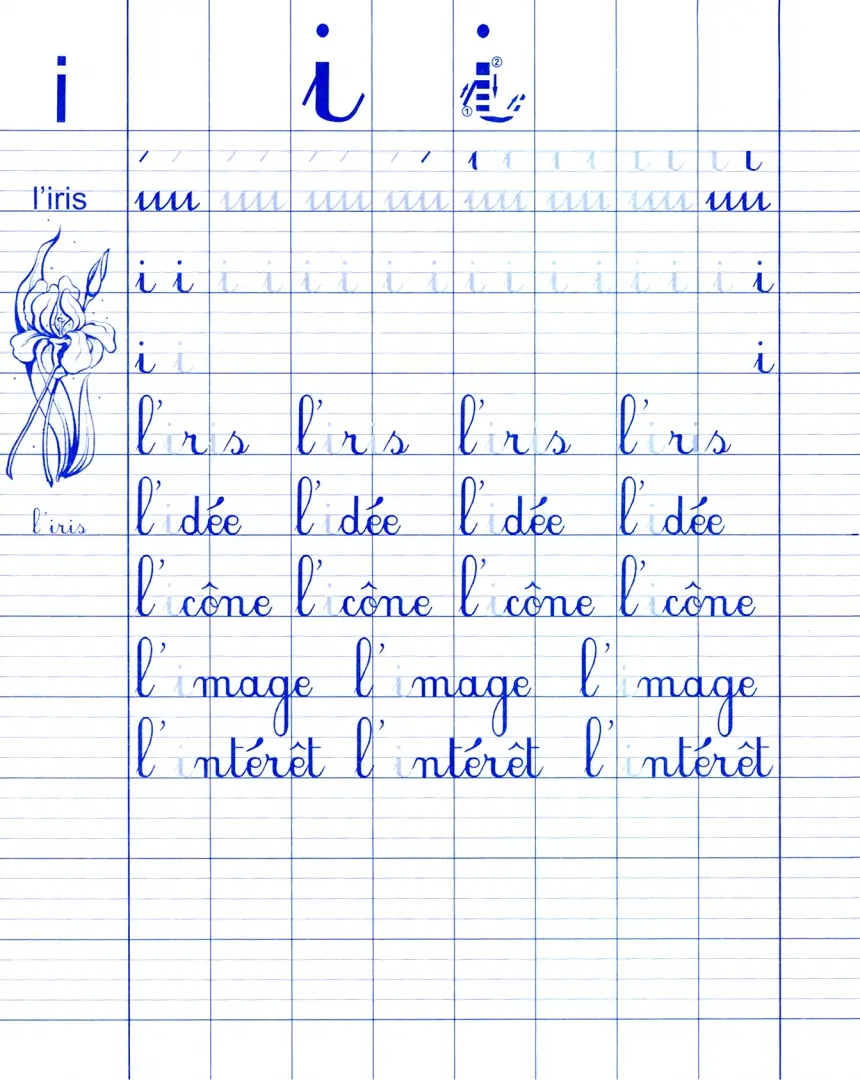 i i i
① ②
l'iris
uu uu uu uu uu uu uu uu
i i i i i i i i i i i i i i i i
i i i
l'iris l'iris l'iris l'iris
l'iris l'idée l'idée l'idée l'idée
l'icône l'icône l'icône l'icône
l'image l'image l'image
l'intérêt l'intérêt l'intérêt